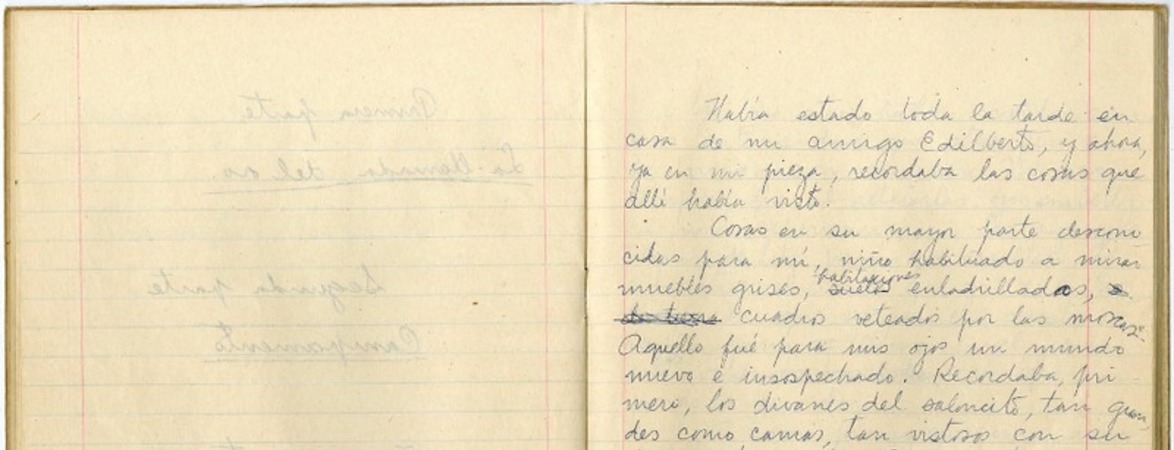 Primera parte
La llamada del oro.
Segunda parte
Campamento
Había estado toda la tarde en
casa de mi amigo Edilberto, y ahora,
ya en mi pieza, recordaba las cosas que
allí había visto.
Cosas en su mayor parte descono
cidas para mí, niño habituado a mirar
habitaciones
muebles grises, suelos enladrillados,
cuadros veteados por las moscas.
Aquello fué para mis ojos un mundo
nuevo e insospechado. Recordaba, pri
mero, los divanes del saloncito, tan gran
des como camas, tan vistosos con su